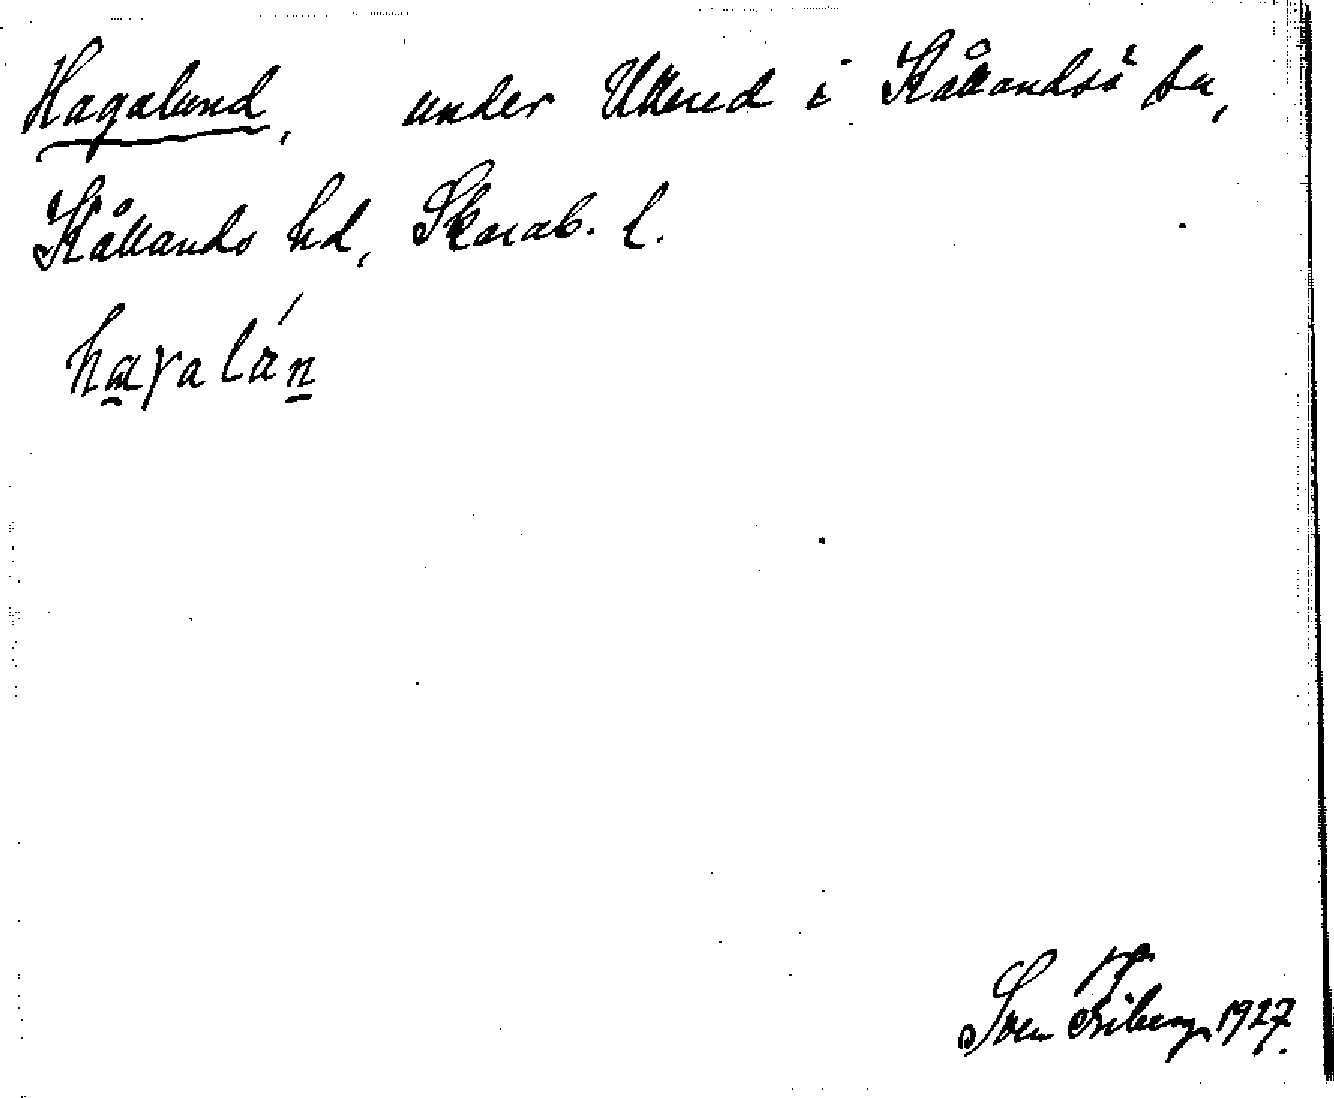 Hagalund, under Ullered i Kållandsö sn,
Kållands hd, Skarab. l.
haɣalán
Sven Friberg 1927.